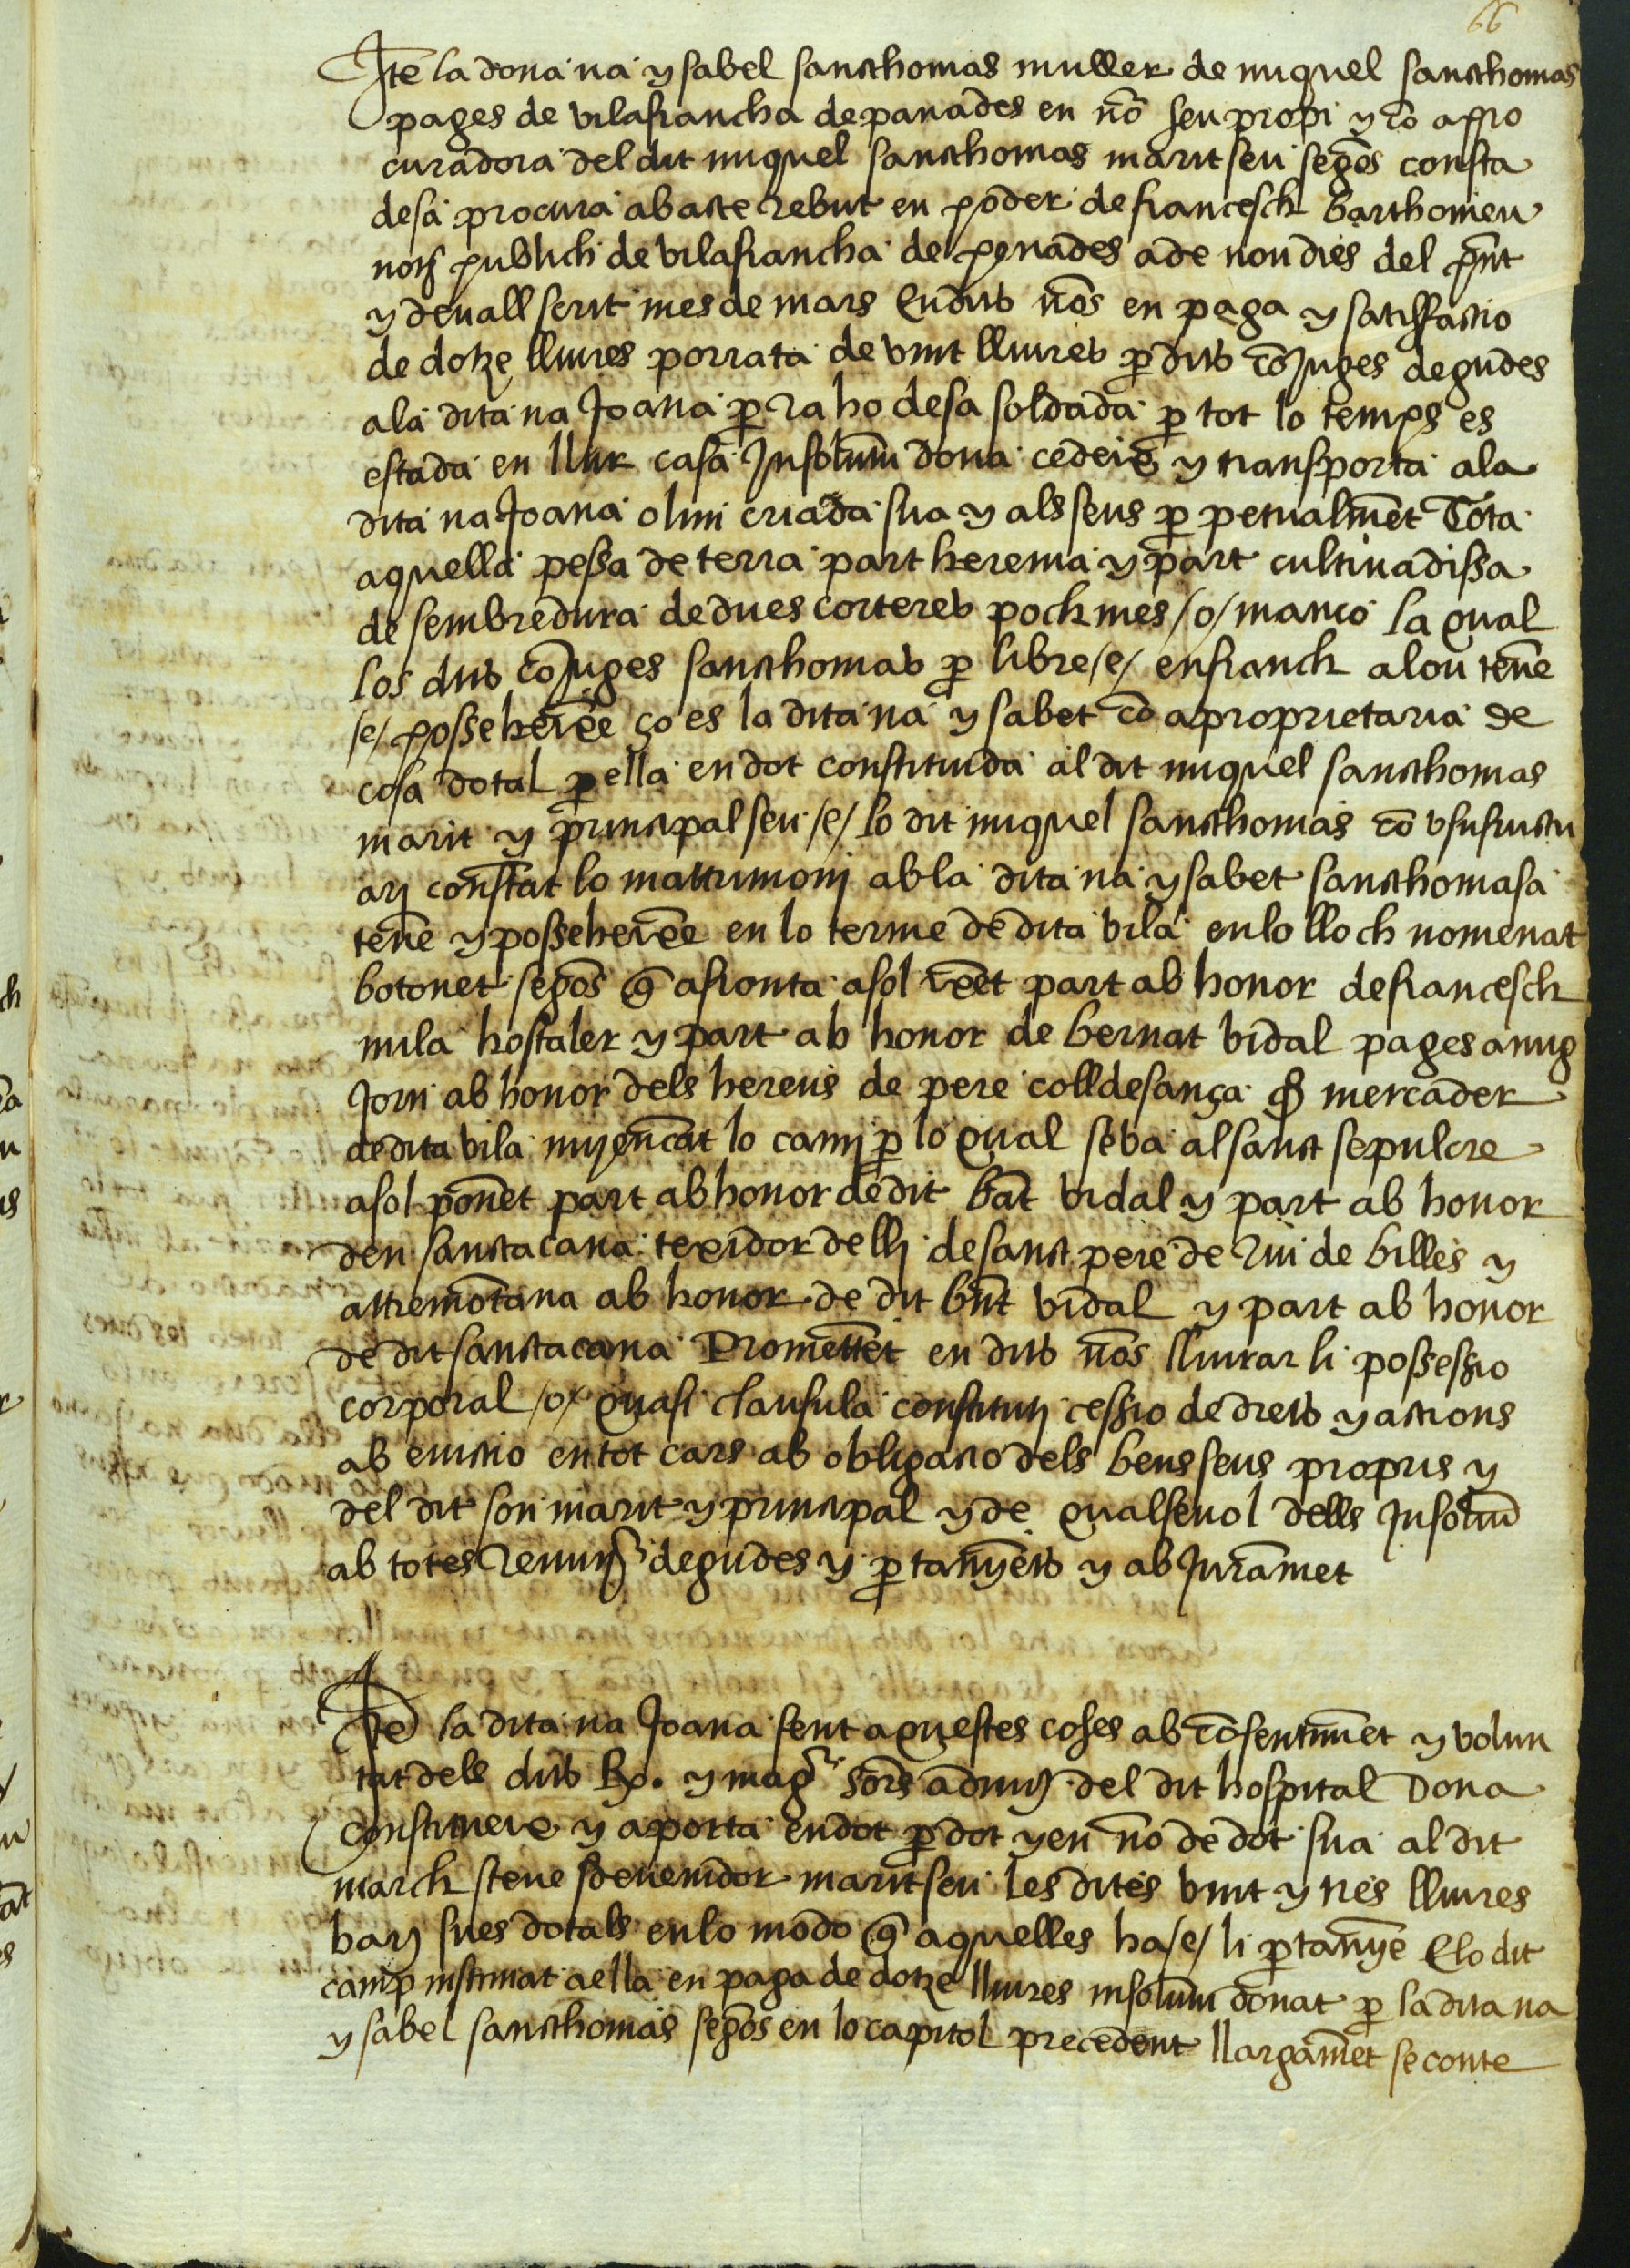 66
Itē la dona na ysabel sancthomas muller de miquel sancthomas
pages de vilafrancha de panades en nō seu propi y cō a pro
curadora del dit miquel sancthomas marit seu segōs consta
de sa procura ab acte rebut en poder de francesch barthomeu
notj publich de vilafrancha de penades a de nou dies del pnt
y devall scrit mes de mars En dits nōs en paga y satisffactio
de dotze lliures porrata de vint lliures p̄ dits cōjuges degudes
a la dita na Joana p̄ raho de sa soldada p̄ tot lo temps es
estada en llur casa Insolutum dona cedeix y transporta a la
dita na Joana olim criada sua y als seus p̄ petualmēt Tota
aquella pessa de terra part herema y part cultivadissa
de sembredura de dues corteres poch mes /o/ manco la qual
los dits cōjuges sancthomas p̄ libre /e/ en franch alou tēne
/e/ possehexē ço es la dita na ysabet cō a proprietaria de
cosa dotal p̄ ella en dot constituida al dit miquel sancthomas
marit y principal seu /e/ lo dit miquel sancthomas cō usufructu
arj constāt lo matrimonj ab la dita na ysabet sancthomasa
tēne y possehexē en lo terme de dita vila en lo lloch nomenat
botonet segōs q̄ afronta a sol ixēt part ab honor de francesch
mila hostaler y part ab honor de bernat vidal pages a mig
Jorn ab honor dels hereus de pere colldesança q̄ mercader
de dita vila mijençāt lo camj p̄ lo qual se va al sanct sepulcre
a sol ponēt part ab honor de dit bāt vidal y part ab honor
den sanctacana texidor de llj de sanct pere de riu de billes y
a tremōtana ab honor de dit bnt vidal y part ab honor
de dit sanctacana Promettēt en dits nōs lliurar li possessio
corporal /o/ quasi clausula constitutj cessio de drets y actions
ab evictio en tot cars ab obligatio dels bens seus propris y
del dit son marit y principal y de qualsevol dells Insolidū
ab totes renunç degudes y p̄tanyēts y ab Juramēt
Itē la dita na Joana fent aquestes coses ab cōsentimēt y volun
tat dels dits Rx. y magchs sors admj del dit hospital Dona
constitueix y aporta en dot p̄ dot y en nō de dot sua al dit
march steve sdevenidor marit seu les dites vint y tres lliures
barj sues dotals en lo modo q̄ aquelles ha /e/ li p̄tanyē E lo dit
camp instimat a ella en paga de dotze lliures insolutum donat p̄ la dita na
ysabel sancthomas segōs en lo capitol precedent llargamēt se conte